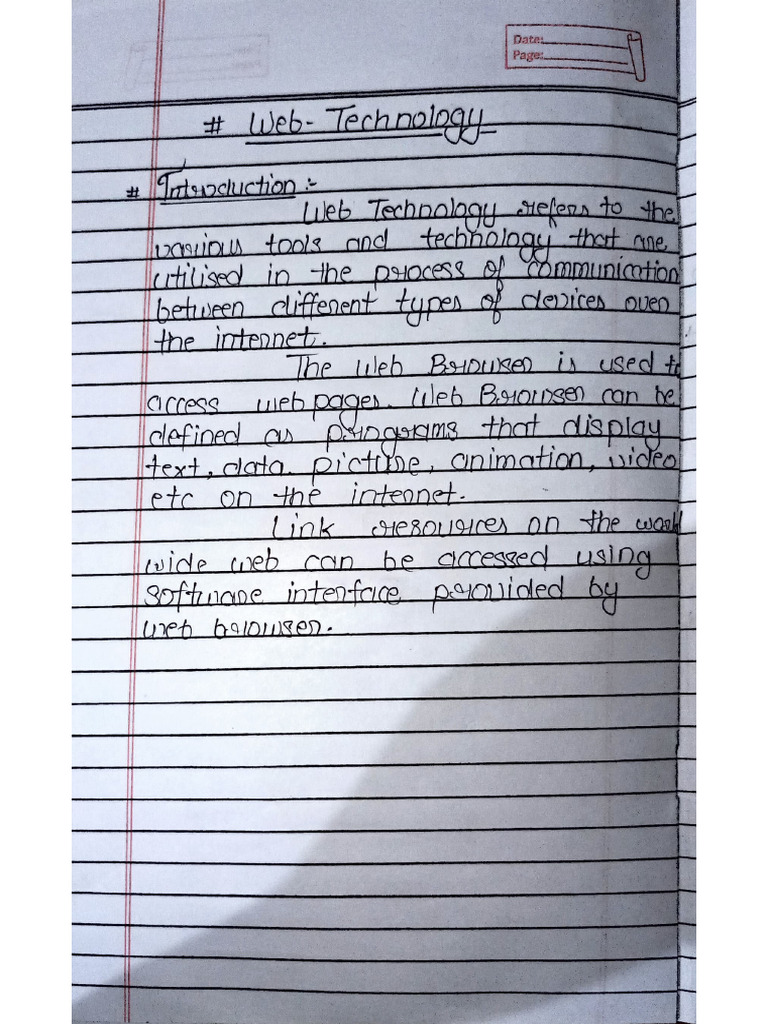 Date:
Page:
# Web-Technology
# Introduction :-
Web Technology refers to the
various tools and technology that are
utilised in the process of communication
between different types of devices over
the internet.
The Web Browser is used to
access web pages. Web Browser can be
defined as programs that display
text, data picture, animation, video
etc on the internet.
Link resources on the world
wide web can be accessed using
software interface provided by
web browser.